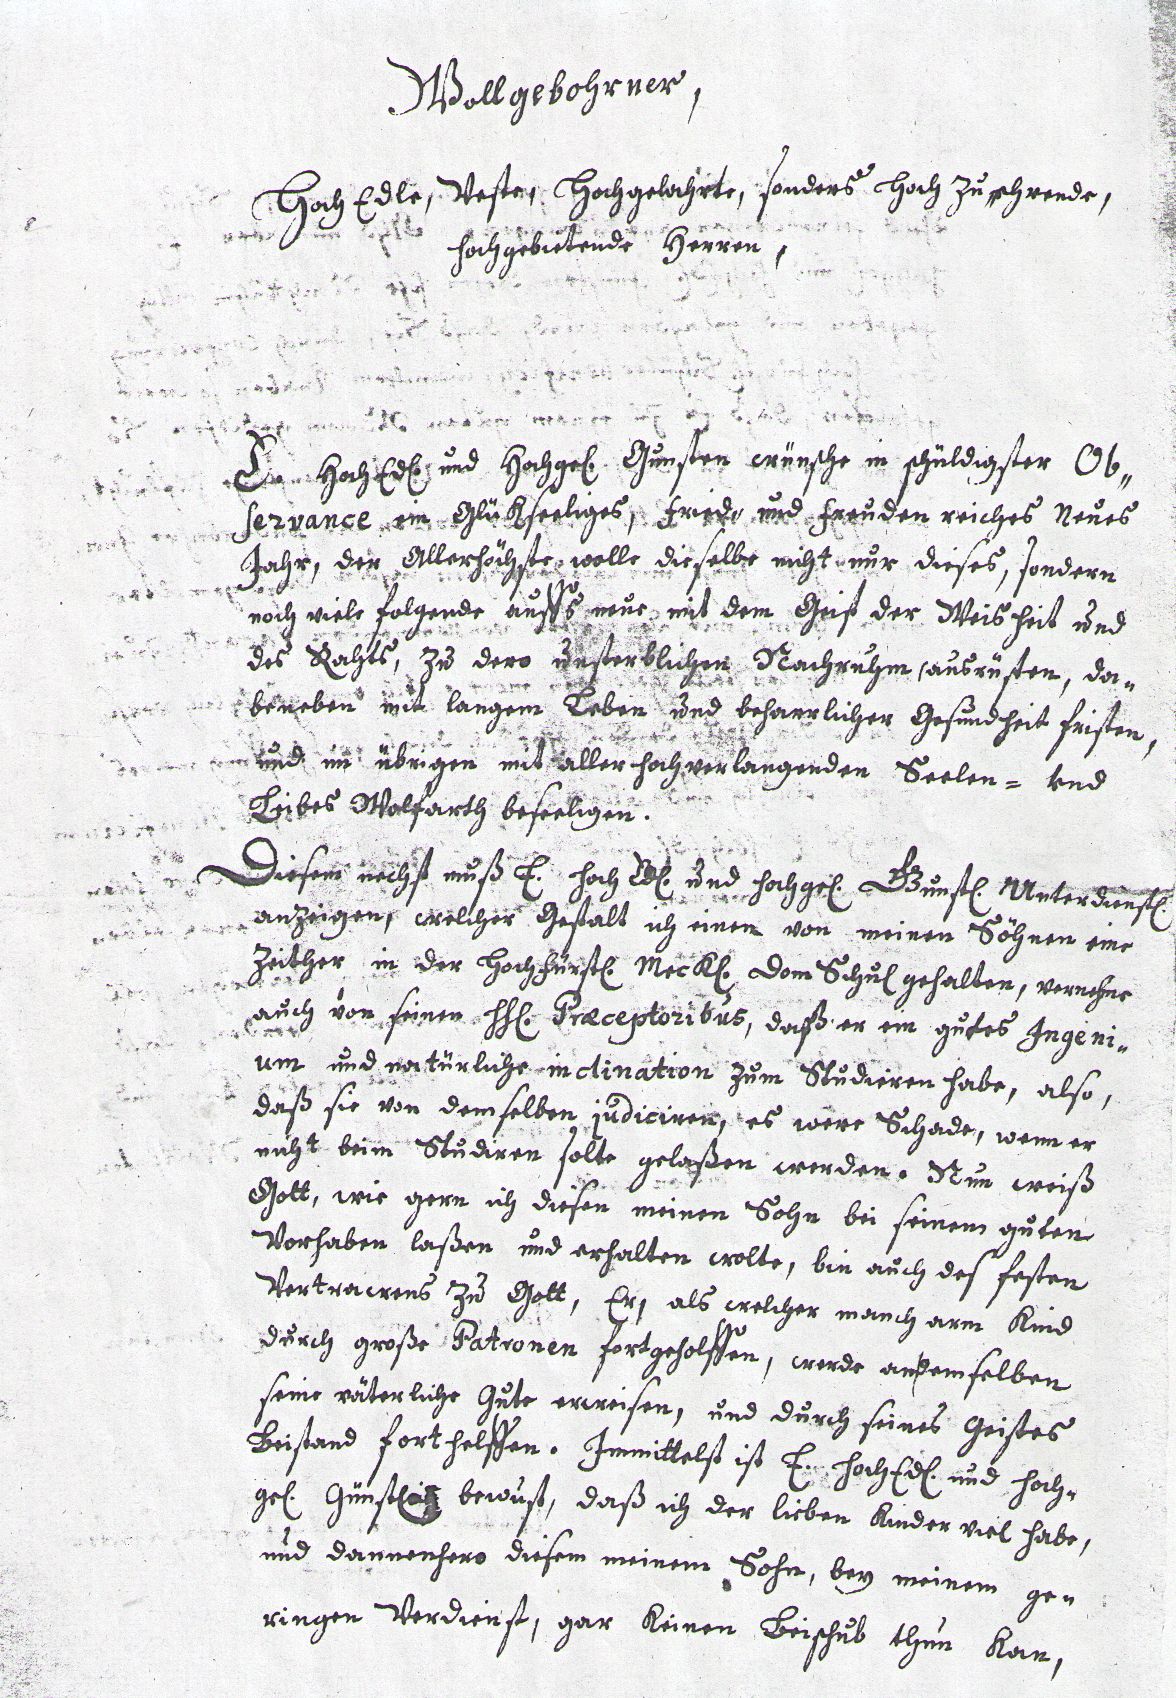 Wollgebohrner,
Hoch Edle, Veste, Hochgelahrte, sonders Hoch zu ehrende,
hochgebietende Herren,
E. HochEdl. und Hochgel. Gunsten wünsche in schüldigster Ob-
servance ein Glükseeliges, Fried- und freudenreiches Neues
Jahr, der Allerhöchste wolle dieselbe nicht nur dieses, sondern
noch viele folgende auffs neue mit dem Geist der Weisheit und
des Rahts, zu dero unsterblichen Nachruhm ausrüsten, da-
beneben mit langem Leben und beharrlicher Gesundheit fristen,
und im übrigen mit aller hochverlangenden Seelen= und
Leibes Wolfarth beseeligen.
Diesem nechst muß E. Hoch Edl. und Hochgel. Gunstl. Unterdienstl.
anzeigen, welcher Gestalt ich einen von meinen Söhnen eine
Zeither in der Hochfürstl. Meckl. Dom Schul gehalten, vernehme
auch von seinen HH. Præceptoribus, daß er ein gutes Ingeni-
um und natürliche inclination zum Studieren habe, also,
daß sie von demselben judiciren, es were Schade, wenn er
nicht beim Studiren solte gelaßen werden. Nun weiß
Gott, wie gern ich diesen meinen Sohn bei seinem guten
Vorhaben laßen und erhalten wolte, bin auch des festen
Vertrawens zu Gott, Er, als welcher manch arm Kind
durch große Patronen fortgeholffen, werde an demselben
seine väterliche Gute erweisen, und durch seines Geistes
Beistand forthelffen. Immittelst ist E. HochEdl. und Hoch-
gel. Günstl. bewust, daß ich der lieben Kinder viel habe,
und dannenhero diesem meinem Sohn, bey meinem ge-
ringen Verdienst, gar keinen Beischub thun kan,